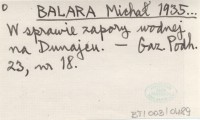 BALARA Michał 1935...
W sprawie zapory wodnej
na Dunajcu. — Gaz. Podh.
23, nr 18.
BT/003/0489